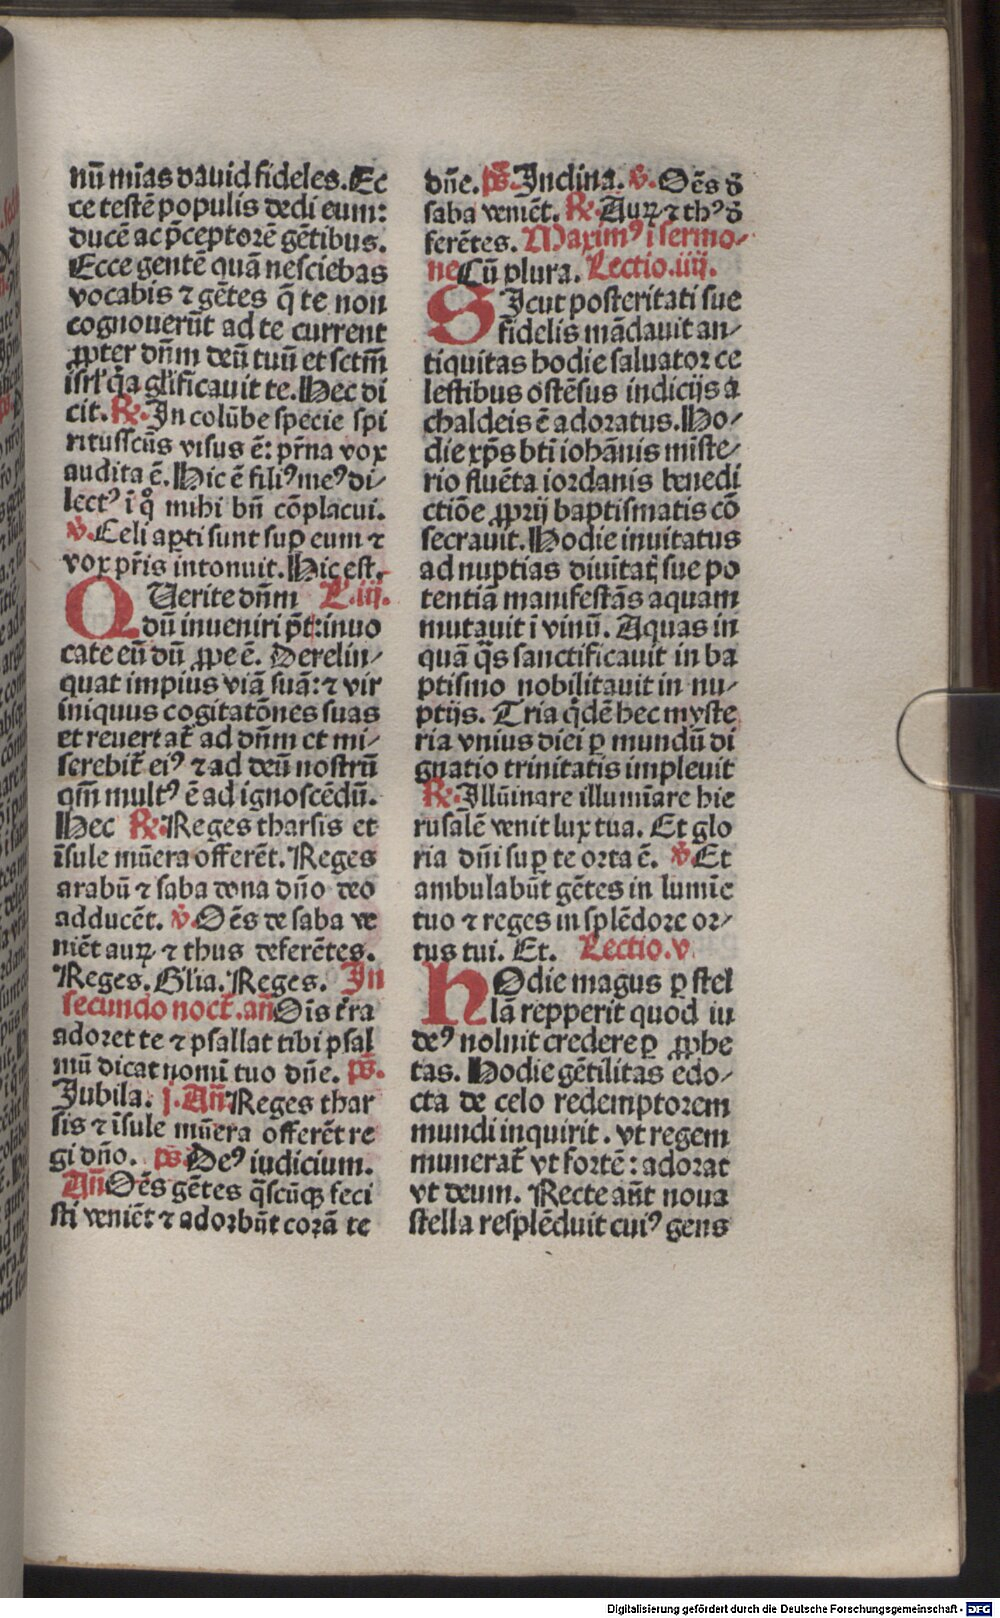 nū mīas dauid fideles. Ec
ce testē populis dedi eum:
ducē ac p̄ceptorē gētibus.
Ecce gentē quā nesciebas
vocabis ⁊ gētes q̄ te non
cognouerūt ad te current
ꝓpter dn̄m deū tuū et sctm̄
isrl' q̄a gl'ificauit te. Hec di
cit. ℟. In colūbe specie spi
ritussc̄us visus ē: pr̄na vox
audita ē. Hic ē filiꝰ meꝰ di⸗
lectꝰ ī qͦ mihi bn̄ cōplacui.
℣. Celi aꝑti sunt suꝑ eum ⁊
vox pr̄is intonuit. Hic est.
QUerite dn̄m L. iij.
dū inueniri pt̄: inuo
cate eū dū ꝓpe ē. Derelin⸗
quat impius viā suā: ⁊ vir
iniquus cogitatōnes suas
et reuertat̄ ad dn̄m et mi⸗
serebit̄ eiꝰ ⁊ ad deū nostrū
qm̄ multꝰ ē ad ignoscēdū.
Hec ℟. Reges tharsis et
īsule mūera offerēt. Reges
arabū ⁊ saba dona dn̄o deo
adducēt. ℣. Oēs de saba ve
niēt auꝝ ⁊ thus deferētes.
Reges. Glia. Reges. In
secundo noct̄. an̄ Oīs t̄ra
adoret te ⁊ psallat tibi psal
mū dicat nomī tuo dn̄e. ps̄.
Jubila. j. An̄ Reges thar
sis ⁊ īsule mūera offerēt re
gi dn̄o. ps̄ Deꝰ iudicium.
An̄ Oēs gētes q̄scūqꝫ feci
sti veniēt ⁊ adorbūt corā te
dn̄e. ps̄. Inclina. ℣. Oēs d̄
saba veniēt. ℟. Auꝝ ⁊ thꝰ d̄
ferētes. Maximꝰ ī sermo⸗
ne Cū plura. Lectio. iiij.
SIcut posteritati sue
fidelis mādauit an⸗
tiquitas hodie saluator ce
lestibus ostēsus indicijs a
chaldeis ē adoratus. Ho⸗
die xp̄s bt̄i iohānis miste⸗
rio fluēta iordanis benedi
ctiōe ꝓprij baptismatis cō
secrauit. Hodie inuitatus
ad nuptias diuitat̄ sue po
tentiā manifestās aquam
mutauit ī vinū. Aquas in
quā q̄s sanctificauit in ba
ptismo nobilitauit in nu⸗
ptijs. Tria q̄dē hec myste
ria vnius diei ꝑ mundū di
gnatio trinitatis impleuit
℟. Illūinare illumīare hie
rusalē venit lux tua. Et glo
ria dn̄i suꝑ te orta ē. ℣ Et
ambulabūt gētes in lumīe
tuo ⁊ reges in splēdore or⸗
tus tui. Et. Lectio. v
HOdie magus ꝑ stel
lā repperit quod iu
deꝰ noluit credere ꝑ ꝓphe
tas. Hodie gētilitas edo⸗
cta de celo redemptorem
mundi inquirit. vt regem
munerat̄ vt fortē: adorat
vt deum. Recte aūt noua
stella resplēduit cuiꝰ gens
Digitalisierung gefördert durch die Deutsche Forschungsgemeinschaft - DFG